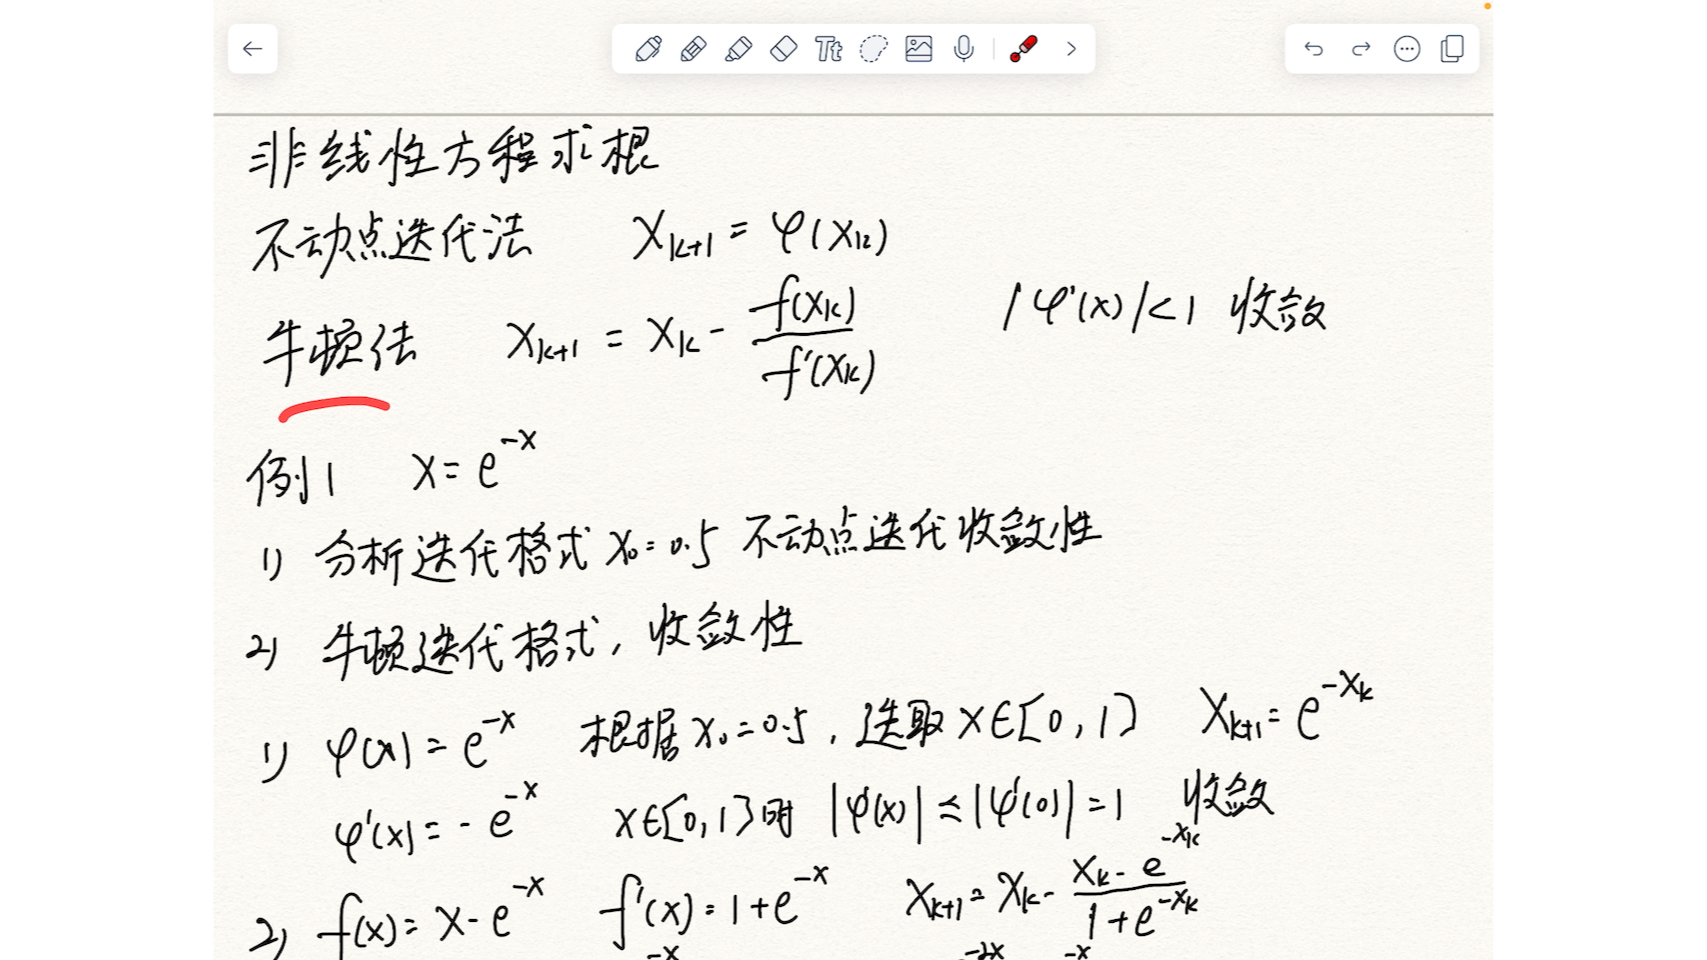 非线性方程求根
不动点迭代法 X_{k+1} = φ(X_k)
牛顿法 X_{k+1} = X_k - \frac{f(X_k)}{f'(X_k)} |φ'(x)|<1 收敛
例1 X = e^{-x}
1) 分析迭代格式 X_0=0.5 不动点迭代收敛性
2) 牛顿迭代格式, 收敛性
1) φ(x) = e^{-x} 根据X_0=0.5, 选取 X∈[0,1] X_{k+1} = e^{-X_k}
φ'(x) = -e^{-x} X∈[0,1]时 |φ'(x)| ≤ |φ'(0)| = 1 收敛
2) f(x) = X - e^{-x} f'(x) = 1+e^{-x} X_{k+1} = X_k - \frac{X_k - e^{-X_k}}{1+e^{-X_k}}